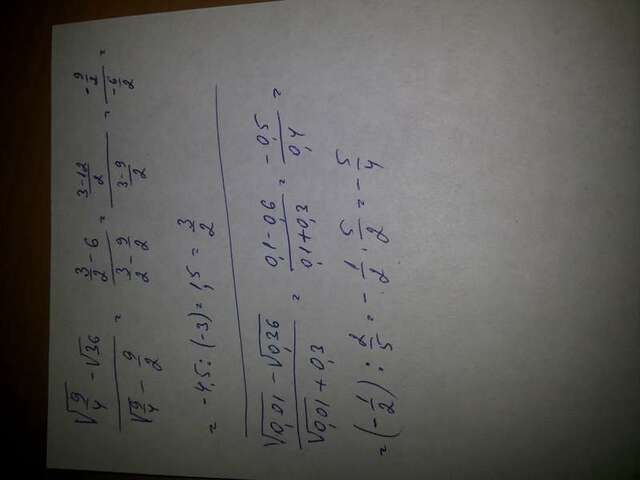 (√(9/4) - √36)/(√(9/4) - 9/2) = (3/2 - 6)/(3/2 - 9/2) = ((3-12)/2)/((3-9)/2) = (-9/2)/(-6/2) =
= -4,5 : (-3) = 1,5 = 3/2
(√0,01 - √0,36)/(√0,01 + 0,3) = (0,1 - 0,6)/(0,1 + 0,3) = -0,5/0,4 =
= (-1/2) : 2/5 = -1/2 · 5/2 = -5/4